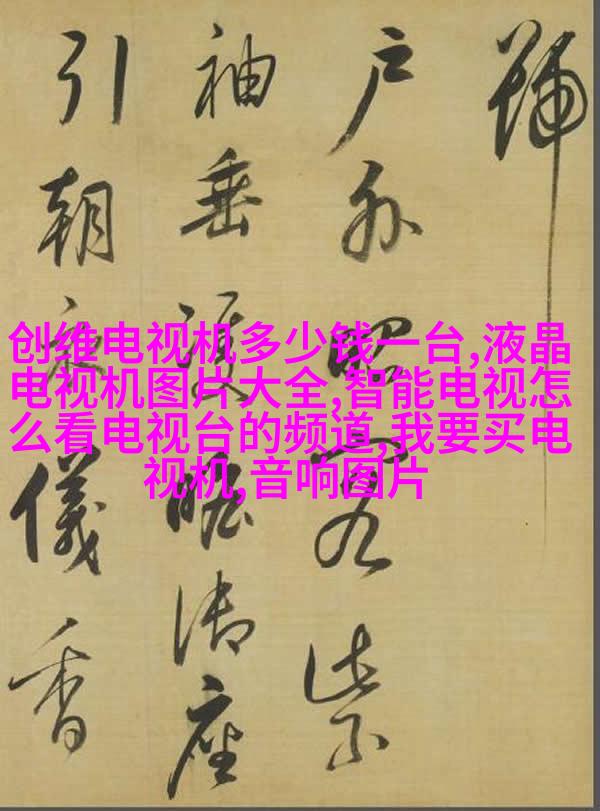 號
戶外昭容紫
袖垂雙瞻御座
引朝儀香
创维电视机多少钱一台,液晶
电视机图片大全,智能电视怎
么看电视台的频道,我要买电
视机,音响图片